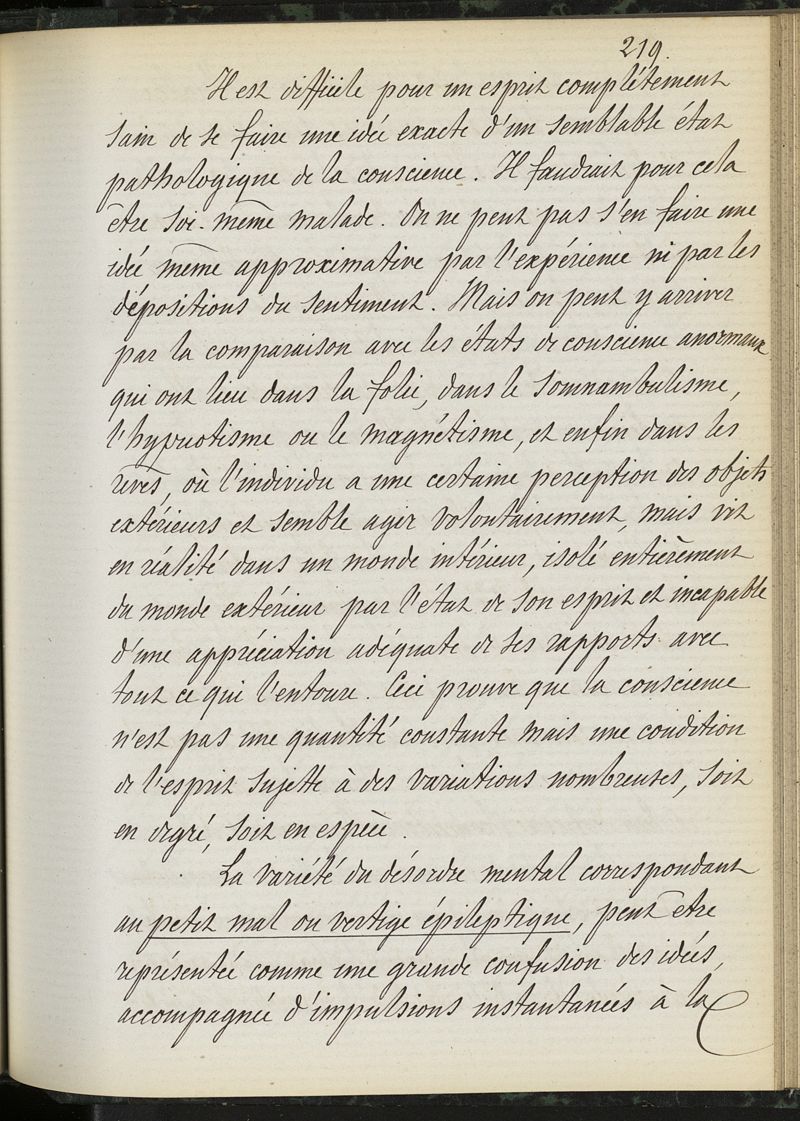 219.
Il est difficile pour un esprit complétement
sain de se faire une idée exacte d'un semblable état
pathologique de la conscience. Il faudrait pour cela
être soi-même malade. On ne peut pas s'en faire une
idée même approximative par l'expérience ni par les
dépositions du sentiment. Mais on peut y arriver
par la comparaison avec les états de conscience anormaux
qui ont lieu dans la folie, dans le somnambulisme,
l'hypnotisme ou le magnétisme, et enfin dans les
rêves, où l'individu a une certaine perception des objets
extérieurs et semble agir volontairement, mais vit
en réalité dans un monde intérieur, isolé entièrement
du monde extérieur par l'état de son esprit et incapable
d'une appréciation adéquate de ses rapports avec
tout ce qui l'entoure. Ceci prouve que la conscience
n'est pas une quantité constante mais une condition
de l'esprit sujette à des variations nombreuses, soit
en degré, soit en espèce.
La variété du désordre mental correspondant
au petit mal ou vertige épileptique, peut être
représentée comme une grande confusion des idées,
accompagnée d'impulsions instantanées à la